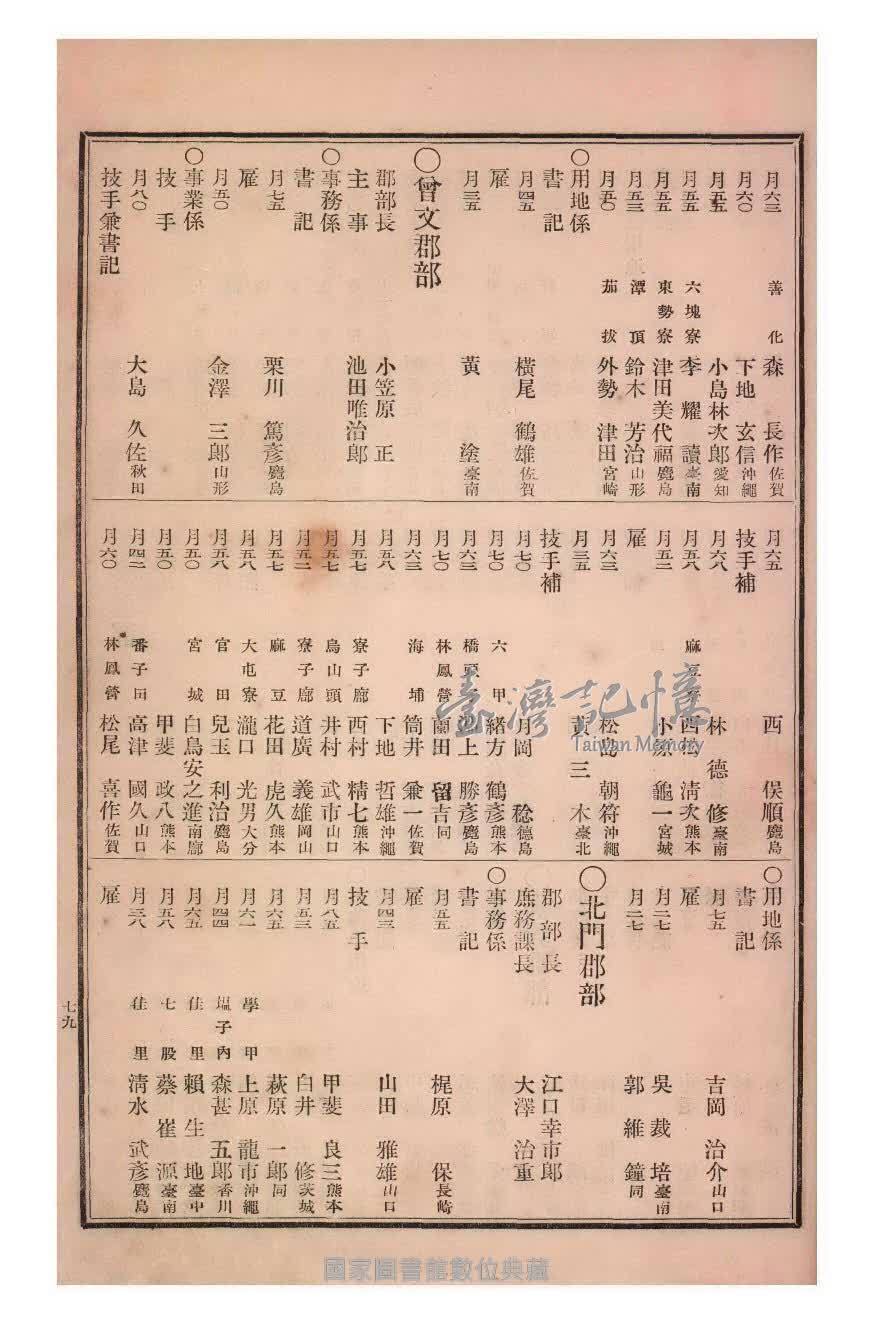 月六三 善化 森長作 佐賀
月六〇 下地玄信 沖繩
月五五 小島林次郎 愛知
月五五 六塊寮 李耀讀 臺南
月五五 東勢寮 津田美代福 鹿島
月五三 潭頂 鈴木芳治 山形
月五〇 茄拔 外勢津田 宮崎
〇用地係
書記
月四五 橫尾鶴雄 佐賀
雇
月三五 黃塗 臺南
〇曾文郡部
郡部長 小笠原正
主事 池田唯治郎
〇事務係
書記
月七五 栗川篤彥 鹿島
雇
月五〇 金澤三郎 山形
〇事業係
技手
月八〇 大島久佐 秋田
技手兼書記
月六五 西俣順 鹿島
技手補
月六八 林德修 臺南
月五八 麻豆寮 西松清次 熊本
月五二 小原龜一 宮城
雇
月六三 松島朝符 沖繩
月三五 黃三木 臺北
技手補
月七〇 月岡稔 德島
月七〇 六甲 緒方鶴彥 熊本
月六三 橋頭 淵上勝彥 鹿島
月七〇 林鳳營 蘭田留吉 同
月六三 海埔 筒井兼一 佐賀
月五八 下地哲雄 沖繩
月五七 寮子廊 西村精七 熊本
月五七 烏山頭 井村武市 山口
月五二 寮子廊 道廣義雄 岡山
月五七 麻豆 花田虎久 熊本
月五八 大屯寮 瀧口光男 大分
月五八 官田 兒玉利治 鹿島
月五〇 宮城 白鳥安之進 南廊
月五〇 甲斐政八 熊本
月四二 番子田 高津國久 山口
月六〇 林鳳營 松尾喜作 佐賀
〇用地係
書記
月七五 吉岡治介 山口
雇
月二七 吳裁培 臺南
月二七 郭維鐘 同
〇北門郡部
郡部長 江口幸市郎
庶務課長 大澤治重
〇事務係
書記
月五五 梶原保 長崎
雇
月四三 山田雅雄 山口
技手
月八五 甲斐良三 熊本
月五三 白井修 茨城
月六五 萩原一郎 同
月六一 學甲 上原龍市 沖繩
月四四 塭子內 森甚五郎 香川
月六五 佳里 賴生地 臺中
月五八 七股 蔡崔源 臺南
月三八 佳里 淸水武彥 鹿島
雇
七九
臺灣記憶
Taiwan Memory
國家圖書館數位典藏